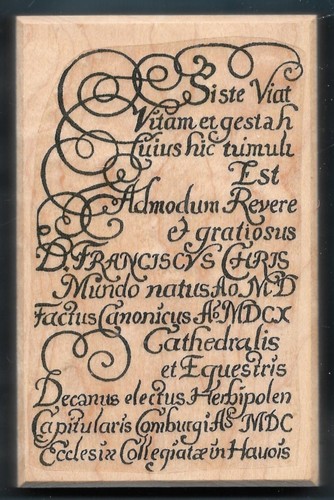 Siste Viat
Vitam et gesta h
Cuius hic tumulu
Est
Admodum Revere
et gratiosus
D. FRANCISCVS CHRIS
Mundo natus Ao. MD
Factus Canonicus Ao. MDCX
Cathedralis
et Equestris
Decanus electus Herbipolen
Capitularis Comburgi Ao. MDC
Ecclesiæ Collegiatæ in Hauois